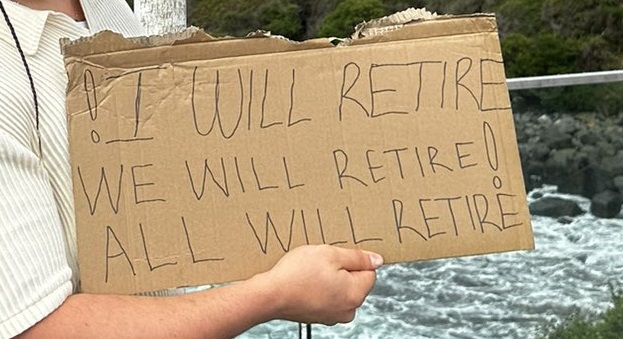 ! I WILL RETIRE
WE WILL RETIRE!
ALL WILL RETIRE